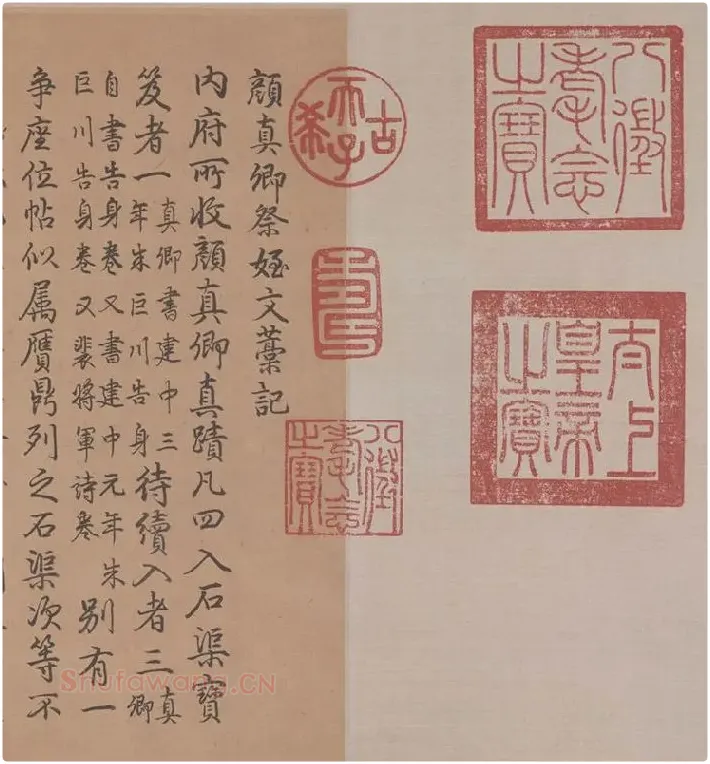 八徵耄念之寶
太上皇帝之寶
古希天子
八徵耄念之寶
顔真卿祭姪文藁記
內府所收顔真卿真蹟凡四入石渠寶
笈者一真卿書建中三年朱巨川告身待續入者三真卿
自書告身卷又書建中元年朱巨川告身卷又裴將軍詩卷別有一
爭座位帖似属贋鼎列之石渠次等不
ShufaWang.CN